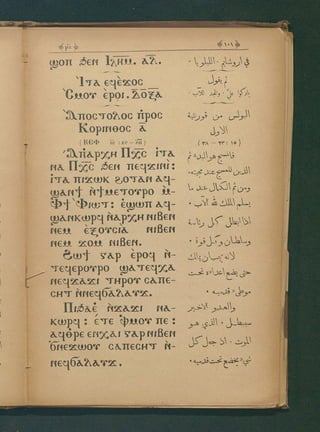 ١٠٩
ϣⲟⲡ ϧⲉⲛ Ⲓⲗ̅ⲏ̅ⲙ̅. ⲁ̅ⲗ̅.
Ⲓⲧⲁ ⲉϥⲉ̀ϫⲟⲥ
Ⲥ̀ⲙⲟⲩ ⲉ̀ⲣⲟⲓ. ⲇⲟⲝⲁ
Ⲁ̀ⲡⲟⲥⲧⲟⲗⲟⲥ ⲡ̀ⲣⲟⲥ
Ⲕⲟⲣⲓⲛⲑⲟⲥ ⲁ̅
Ⲁ̀ⲡⲁⲣⲭⲏ Ⲡⲭ̅ⲥ ⲓⲧⲁ
ⲛⲁ Ⲡⲭ̅ⲥ ϧⲉⲛ ⲡⲉϥϫⲓⲛⲓ̀:
ⲓⲧⲁ ⲡⲓϫⲱⲕ ϩⲟⲧⲁⲛ ⲁϥ-
ϣⲁⲛϯ ⲛ̀ϯⲙⲉⲧⲟⲩⲣⲟ ⲙ̀-
Ⲫϯ Ⲫ̀ⲓⲱⲧ: ⲉϣⲱⲡ ⲁϥ-
ϣⲁⲛⲕⲱⲣϥ ⲛ̀ⲁⲣⲭⲏ ⲛⲓⲃⲉⲛ
ⲛⲉⲙ ⲉⲝⲟⲩⲥⲓⲁ ⲛⲓⲃⲉⲛ
ⲛⲉⲙ ϫⲟⲙ ⲛⲓⲃⲉⲛ.
Ϩⲱϯ ⲅⲁⲣ ⲉ̀ⲣⲟϥ ⲛ̀-
ⲧⲉϥⲉⲣⲟⲩⲣⲟ ϣⲁⲧⲉϥⲭⲁ
ⲛⲉϥϫⲁϫⲓ ⲧⲏⲣⲟⲩ ⲥⲁⲡⲉ-
ⲥⲏⲧ ⲛ̀ⲛⲉϥϭⲁⲗⲁⲩϫ.
Ⲡⲓϧⲁⲉ̀ ⲛ̀ϫⲁϫⲓ ⲛⲁ-
ⲕⲱⲣϥ: ⲉ̀ⲧⲉ ⲫ̀ⲙⲟⲩ ⲡⲉ:
ⲁϥⲑⲣⲉ ⲉⲛⲭⲁⲓ ⲅⲁⲣ ⲛⲓⲃⲉⲛ
ϭ̀ⲛⲉϫⲱⲟⲩ ⲥⲁⲡⲉⲥⲏⲧ ⲛ̀-
ⲛⲉϥϭⲁⲗⲁⲩϫ.
في اروشليم. الليلويا.
ثم يقول
البولس من قورنثية
الاولى
الذين للمسيح عند مجيئه.
ومن ثم الكمال عند ما
يسلم الملك لله الآب.
اذا ابطل كل رئاسة
وسلطان وكل قوة.
لانه يجب ان يملك
حتى يضع اعداءه تحت
موطئ قدميه.
والعدو الاخير
سيبطل. الذي هو
الموت. اذ جعل كل
شيء يخضع تحت قدميه.